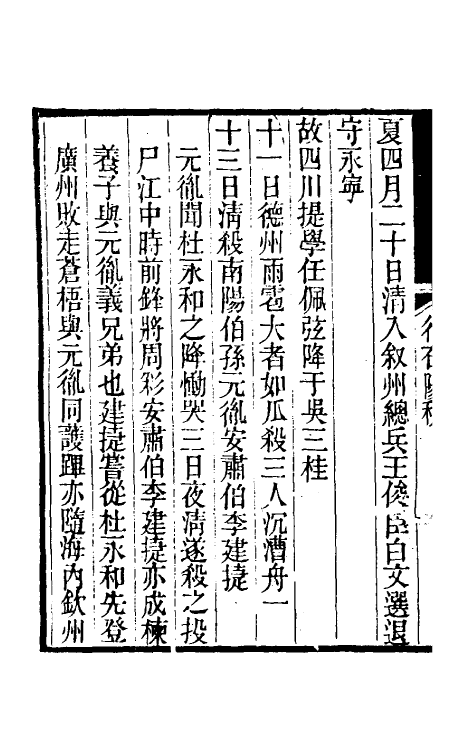 夏四月二十日清入叙州總兵王俊臣白文選退
守永寧
故四川提學任佩弦降于吳三桂
十一日德州雨雹大者如瓜殺三人沉漕舟一
十三日清殺南陽伯孫元胤安肅伯李建捷
元胤聞杜永和之降慟哭三日夜清遂殺之投
尸江中時前鋒將周彩安肅伯李建捷亦成棟
養子與元胤義兄弟也建捷嘗從杜永和先登
廣州敗走蒼梧與元胤同護蹕亦隨海內欽州